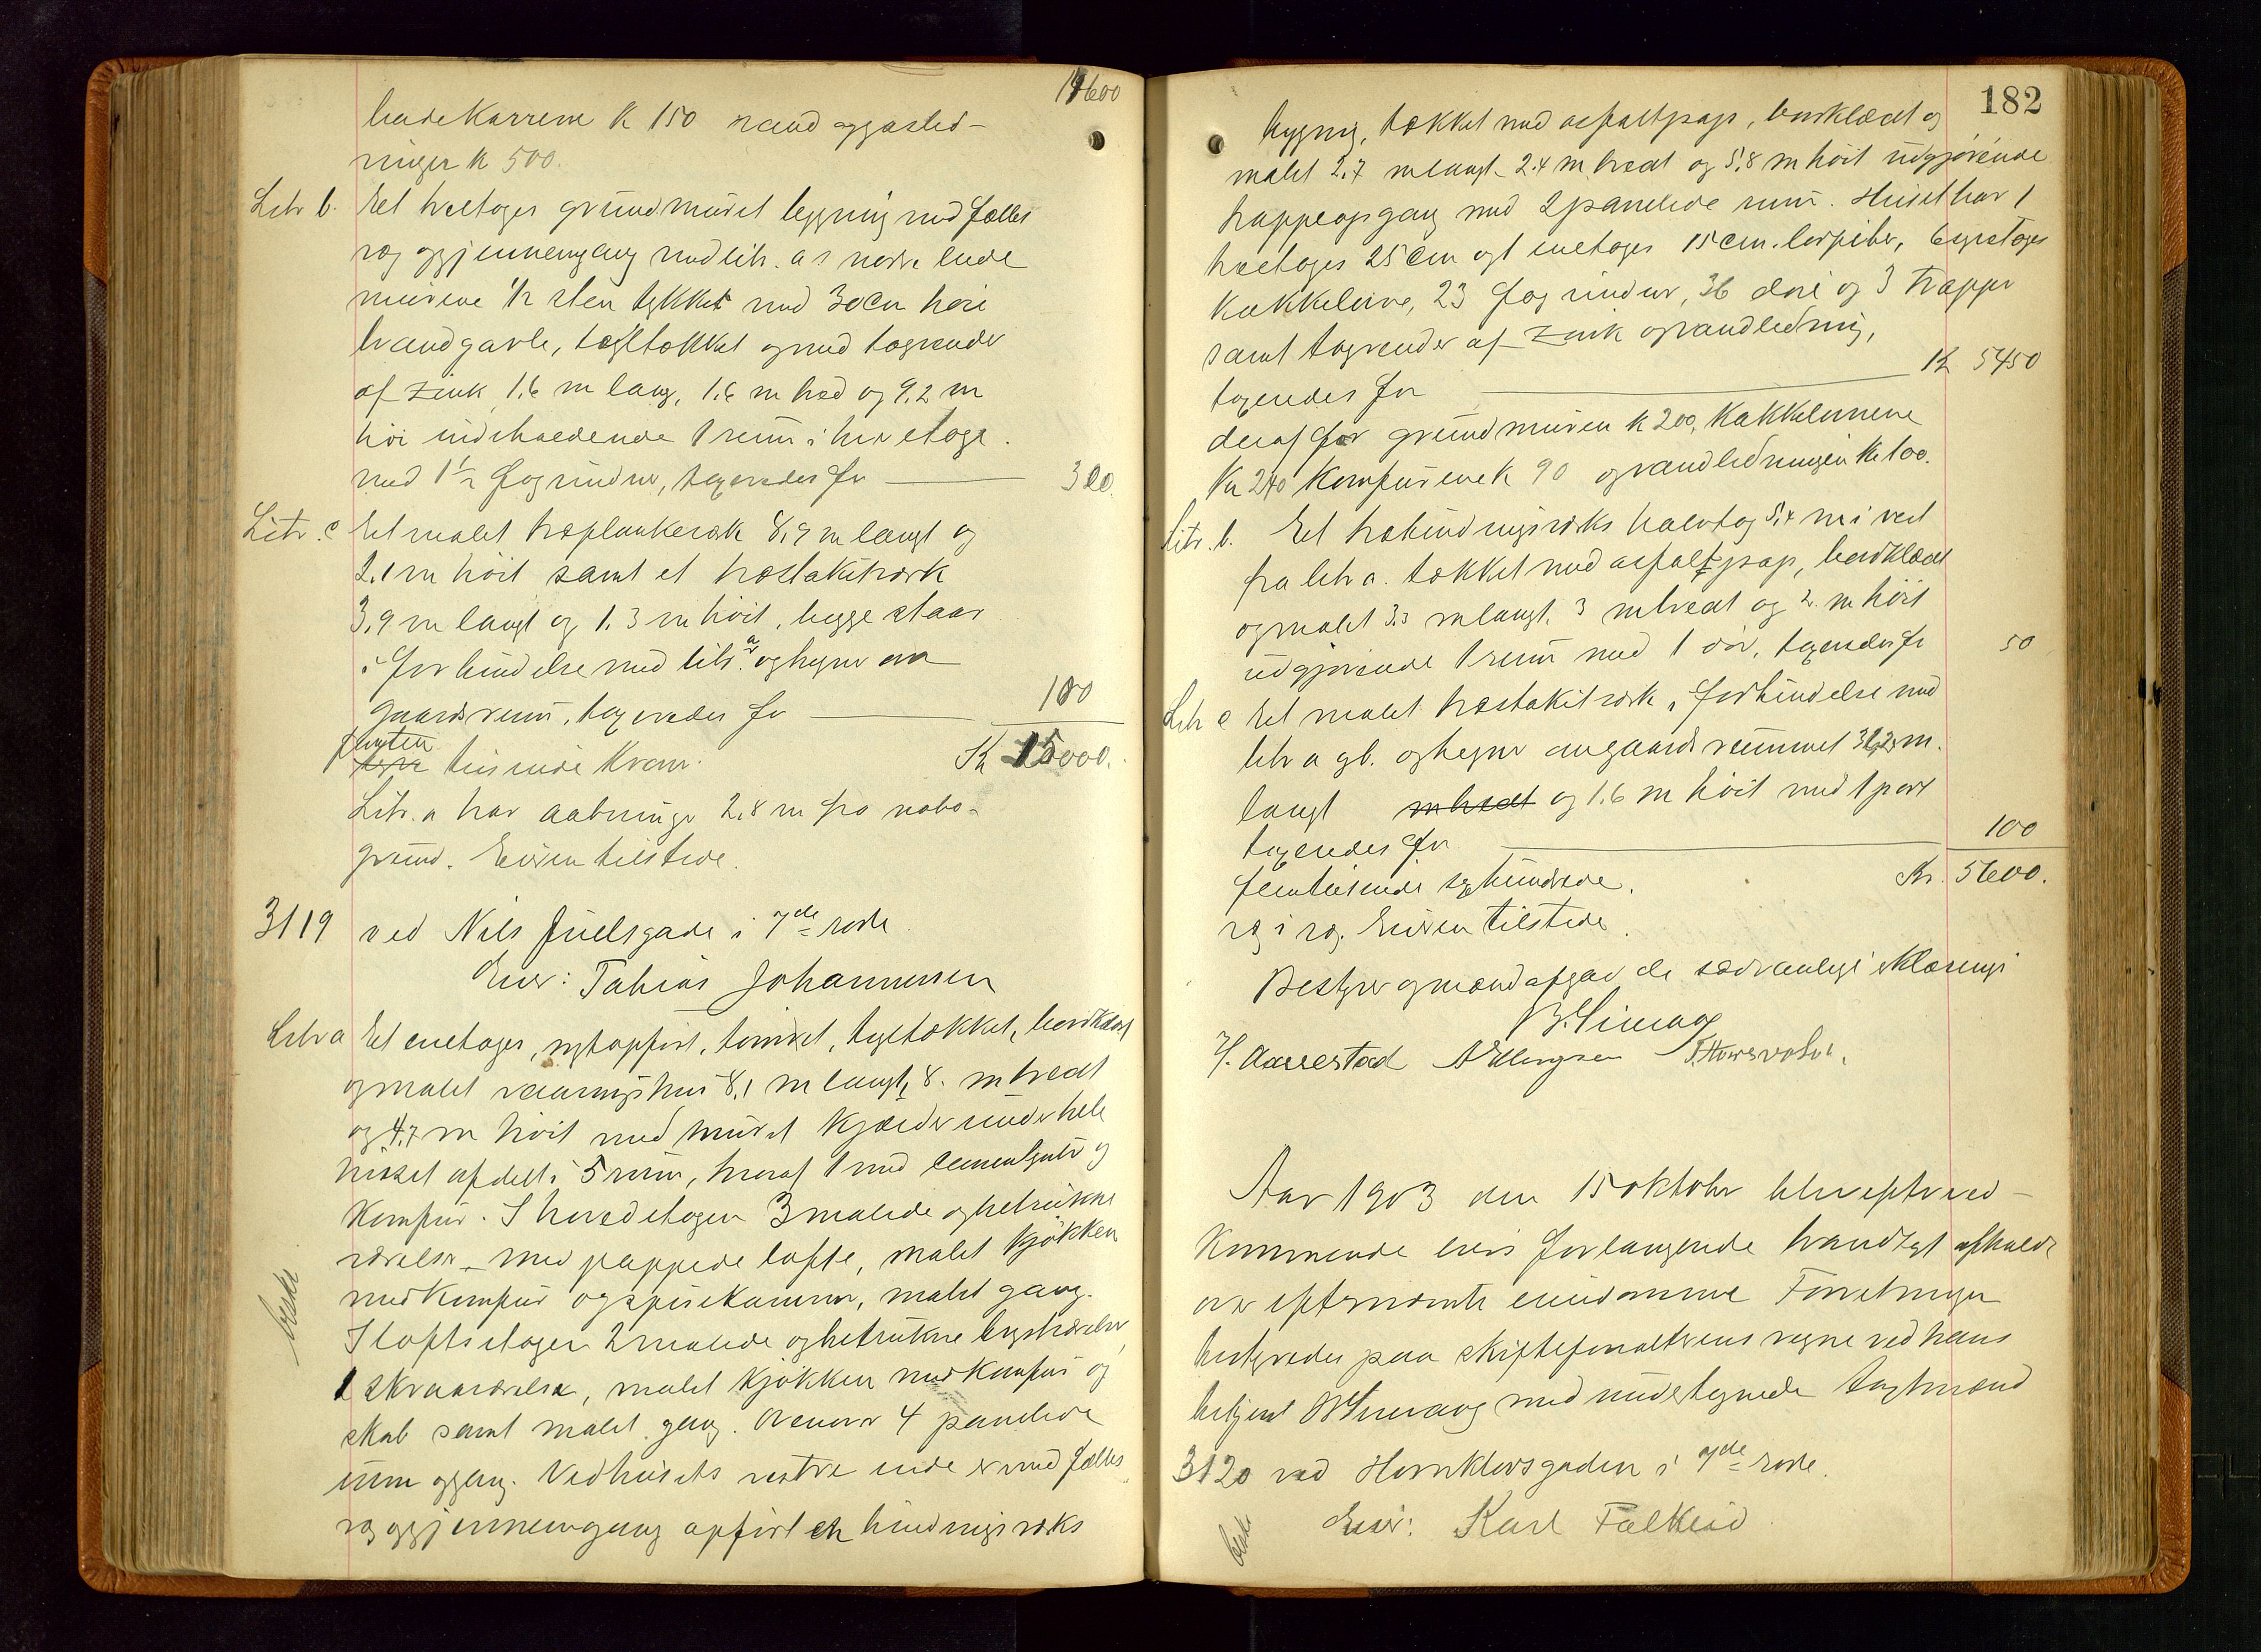 14600
badekarrene k 150 vand oggasled-
ninger k 500.
Litr b. Et treetages grundmuret bygning med fælles
væg oggjennemgang med litr. a s nordre ende
murene 1/2 sten tykket med 30 cm høie
brandgavle, tegltækket ogmed tagrender
af zink 1.6 m lang, 1.6 m bred og 9.2 m
høi indeholdende 1 rum i hver etage.
med 1 1/2 fag vinduer, taxeredes for 300.
Litr. c Et malet træplankeværk 8,9 m langt og
2.1 m høit samt et træstakitværk
3.9 m langt og 1.3 m høit, begge staar
i forbindelse med litr. a og hegner om
gaardsrum, taxeredes for 100
femten
tusinde Kroner. Kr 15000.
Litr. a har aabninger 2.8 m fra nabo-
grund. Eieren tilstede.
3119 ved Nils Juelsgade i 7de rode.
Eier: Tobias Johannessen
Litr a Et enetages, nytopført, tømret, tegltækket, bordklædt
ogmalet vaaningshus 8,1 m langt, 8. m bredt
og 4.7 m høit med muret kjælder under hele
huset afdelt i 5 rum, hvoraf 1 med cementgulv og
Komfur. I hovedetagen 3 malede ogbetrukne
værelser med pappede lofte, malet kjøkken
medkomfur ogspisekammer, malet gang.
I loftsetagen 2 malede ogbetrukne kvistværelser,
1 skraaværelse, malet kjøkken medkomfur og
skab samt malet gang. Ovenover 4 panelede
rum oggang. Ved husets vestre ende er med fælles
væg oggjennemgang opført en bindingsværks
182
bygning, tækket med asfaltpap, bordklædt og
malet 2.7 m langt 2.4 m bredt og 5.8 m høit udgjørende
trappeopgang med 2 panelede rum. Huset har 1
treetages 25 cm og 1 enetages 15 cm. lerpiber, 6 enetages
Kakkelovne, 23 fag vinduer, 36 døre og 3 trapper
samt tagrender af zink ogvandledning,
taxeredes for K 5450
deraf for grundmuren k 200, Kakkelovnene
Kr 240 Komfurene k 90 ogvandledningen Kr 100.
Litr. b. Et træbindingsværks halvtag 5,4 m i vest
fra litr a. tækket med asfaltpap, bordklædt
ogmalet 3.3 m langt, 3 m bredt og 2. m høit
udgjørende 1 rum med 1 dør, taxeredes for 50
Litr c Et malet træstakitværk i forbindelse med
litr a ogb. oghegner omgaardsrummet 31,2 m.
langt m bredt og 1.6 m høit med 1 port
taxeredes for 100
femtusinde sexhundrede. Kr. 5600.
væg i væg. Eieren tilstede.
Bestyrer ogmænd afgav de sædvanlige erklæringer
H. Aarrestad
Aar 1903 den 15 oktober blev efter ved-
kommende eiers forlangende brandtaxt afholdt
over efternævnte eiendomme Forretningen
bestyredes paa skifteforvalterens vegne ved hans
betjent med undertegnede taxtmænd
3120 ved Hornklovsgaden i 7de rode.
Eier: Karl Falkeid